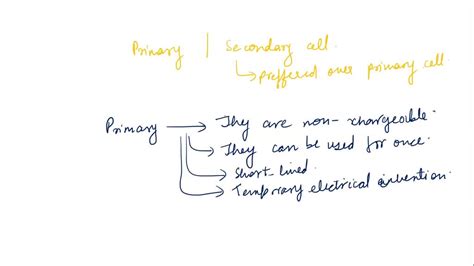 Primary | Secondary cell.
preffered over primary cell.
Primary → They are non-chargeable.
They can be used for once.
Short-lived.
Temporary electrical invention.